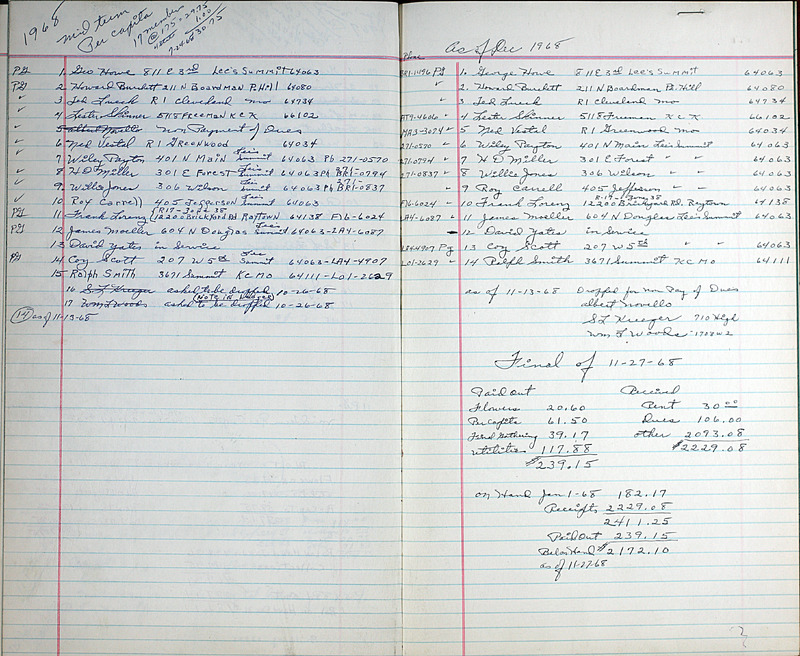 1968
Mid term
Per capita
17 member
@ 175 = 29.75
1.00
30.75
PG 1. Geo Howe 811 E 3rd Lee's Summit 64063
PG 2. Howard Burdett 211 N Boardman P. Hill 64080
✓ 3 Ted Lueck R1 Cleveland Mo 64734
✓ 4 Lester Skinner 5118 Freeman K C K 66102
5 Albert Novello Non Payment of Dues
✓ 6 Ned Vestal R1 Greenwood 64034
✓ 7 Wiley Payton 401 N Main Lee's Summit 64063 Ph 271-0570
✓ 8 H D Miller 301 E Forest Lee's Summit 64063 Ph 271- BR1-0794
✓ 9. Willie Jones 306 Wilson Lee's Summit 64063 Ph 271- BR1-0837
✓ 10 Roy Carrell 405 Jefferson Lee's Summit 64063
PG 11 Frank Loreny 12200 Brickyard Rd Raytown 64138 FL6-6024
PG 12 James Moeller 604 N Douglas Lee's Summit 64063-LA4-6087
13 David Yates in Service
PG 14 Coy Scott 207 W 5th Lee Summit 64063-LA4-4907
15 Ralph Smith 3671 Summit K C MO 64111-LO1-2629
16 S L Krieger asked to be dropped 10-26-68
17 Wm L Woods asked to be dropped 10-26-68
(14) as of 11-13-68
as of Dec 1968
Phone
BR1-1496 PG 1. George Howe 811 E 3rd Lee's Summit 64063
✓ 2. Howard Burdett 211 N Boardman P. Hill 64080
✓ 3 Ted Lueck R1 Cleveland Mo 64734
AT9-4606 ✓ 4. Lester Skinner 5118 Freeman K C K 66102
MA3-3074 ✓ 5 Ned Vestal R1 Greenwood Mo 64034
271-0570 ✓ 6 Wiley Payton 401 N Main Lee's Summit 64063
271-0794 ✓ 7 H D Miller 301 E Forest " " 64063
271-0837 ✓ 8 Willie Jones 306 Wilson " " 64063
✓ 9 Roy Carrell 405 Jefferson " " 64063
FL6-6024 ✓ 10 Frank Loreny 12200 Brickyard Rd. Raytown 64138
LA4-6087 ✓ 11 James Moeller 604 N Douglas Lee's Summit 64063
- 12 David Yates in Service
LA4-4907 PG 13 Coy Scott 207 W 5th " " 64063
LO1-2629 ✓ 14 Ralph Smith 3671 Summit K C MO 64111
as of 11-13-68 Dropped for non Pay of Dues
Albert Novello
S L Krieger 710 High
Wm L Woods
Final of 11-27-68
Paid Out Received
Flowers 20.60 Rent 30.00
Per Capita 61.50 Dues 106.00
39.17 other 2093.08
utilities 117.88 $2229.08
$239.15
on Hand Jan 1-68 182.17
Receipts 2229.08
2411.25
Paid Out 239.15
Bal on Hand $2172.10
as of 11-27-68